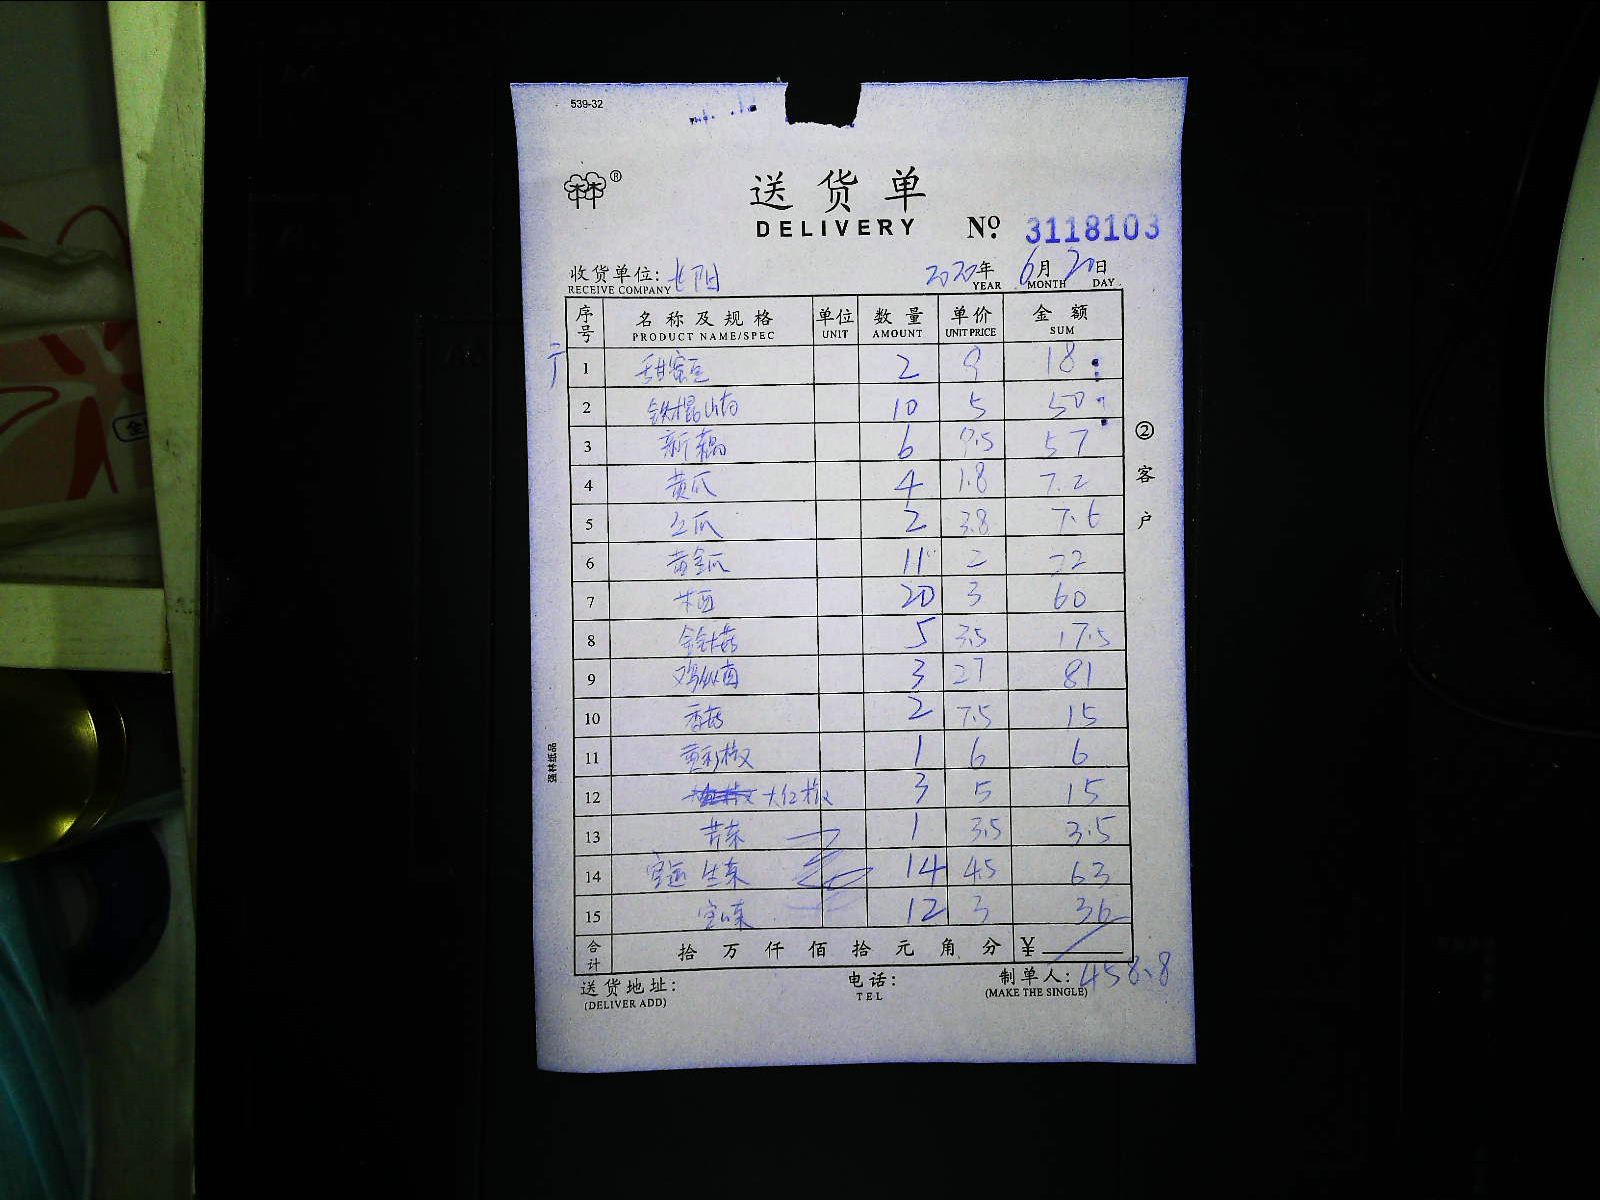 539-32
®
送货单
DELIVERY
№ 3118103
收货单位: 长阳 2020年 6月 20日
RECEIVE COMPANY YEAR MONTH DAY
序号 名称及规格 单位 数量 单价 金额
PRODUCT NAME/SPEC UNIT AMOUNT UNIT PRICE SUM
1 甜蜜豆 2 9 18
2 铁棍山药 10 5 50
3 新藕 6 9.5 57
4 黄瓜 4 1.8 7.2
5 2 3.8 7.6
6 黄金瓜 11 2 22
7 20 3 60
8 金针菇 5 3.5 17.5
9 鸡枞菌 3 27 81
10 香菇 2 7.5 15
11 黄彩椒 1 6 6
12 大红椒 3 5 15
13 苦菜 1 3.5 3.5
14 生菜 14 4.5 63
15 12 3 36
合计 拾 万 仟 佰 拾 元 角 分 ¥
458.8
送货地址: 电话: 制单人:
(DELIVER ADD) TEL (MAKE THE SINGLE)
②客户
强林纸品